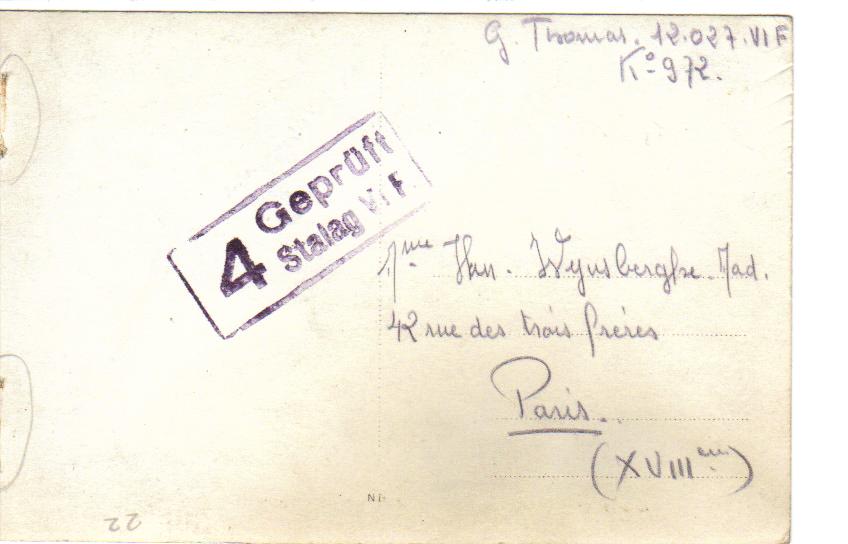 G. Thomas. 12.027. VI F
K° 972.
4 Geprüft
Stalag VI F.
Van. Wynsberghe. Mad.
42 rue des trois frères
Paris.
(XVIIIem)
NI
22